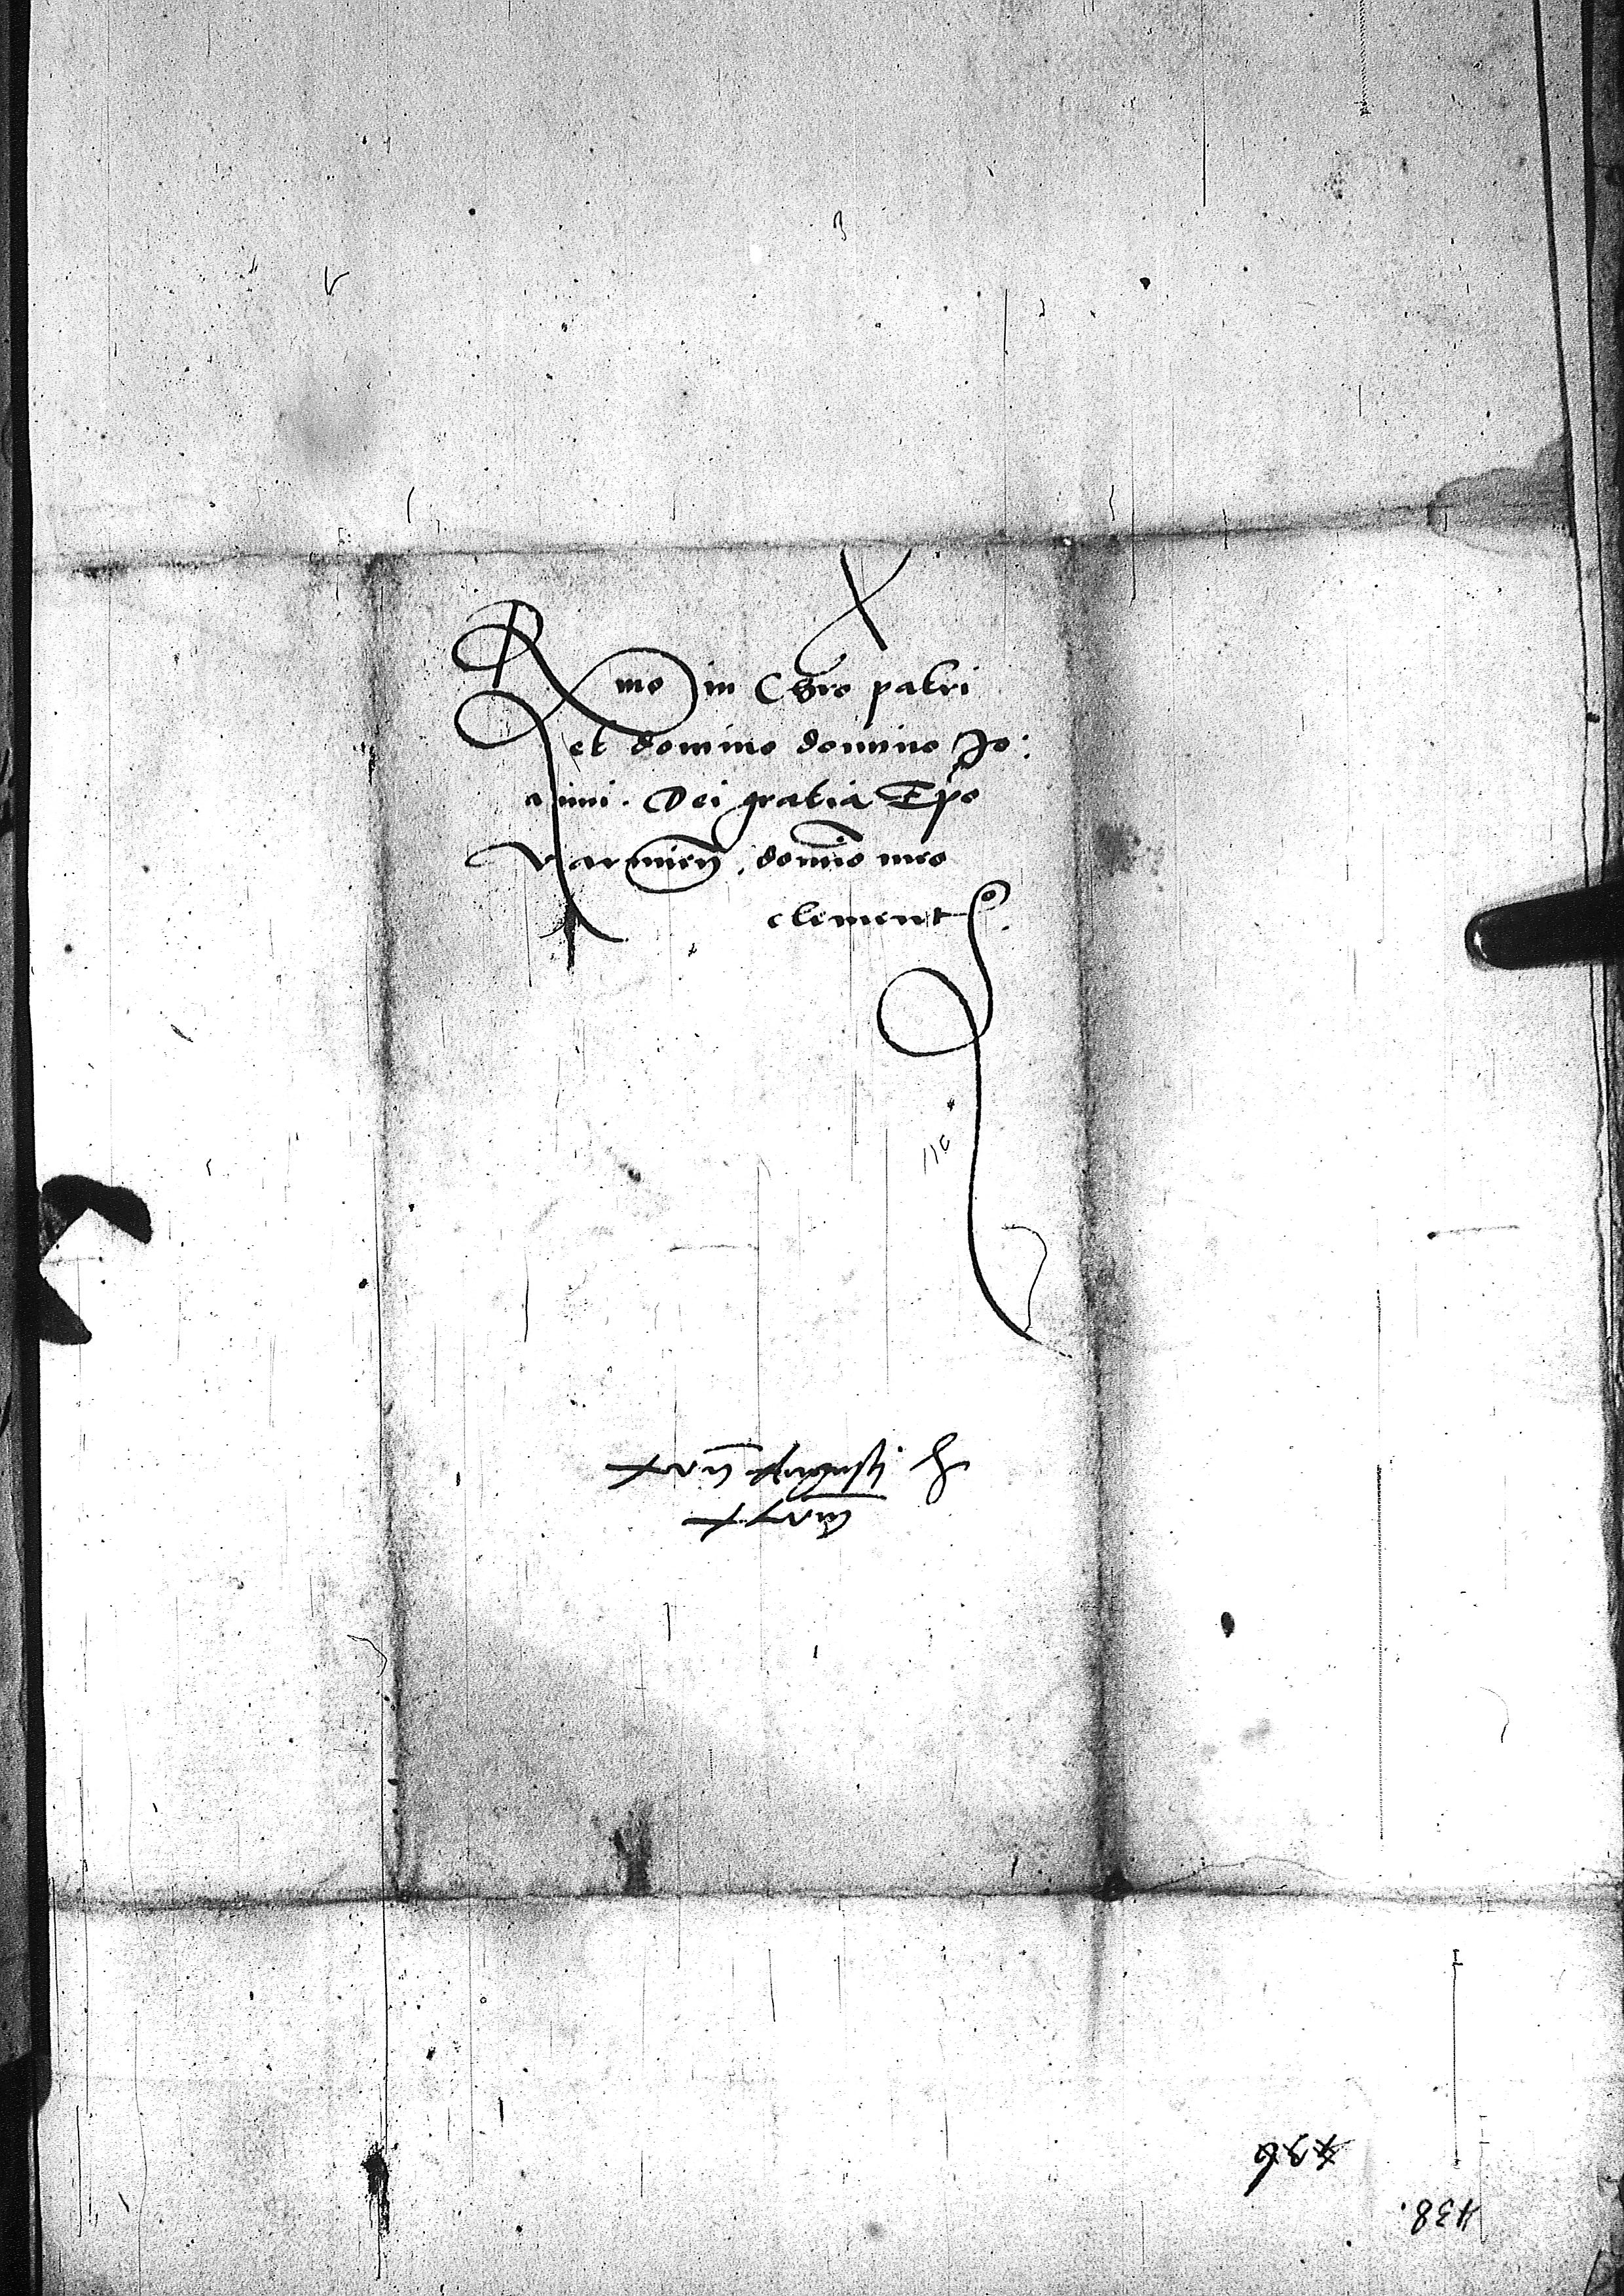 Rmo in Chro patri
et domino domino Jo:
anni. Dei gratia Epo
Varmien. domino meo
clement^o.
436
438.